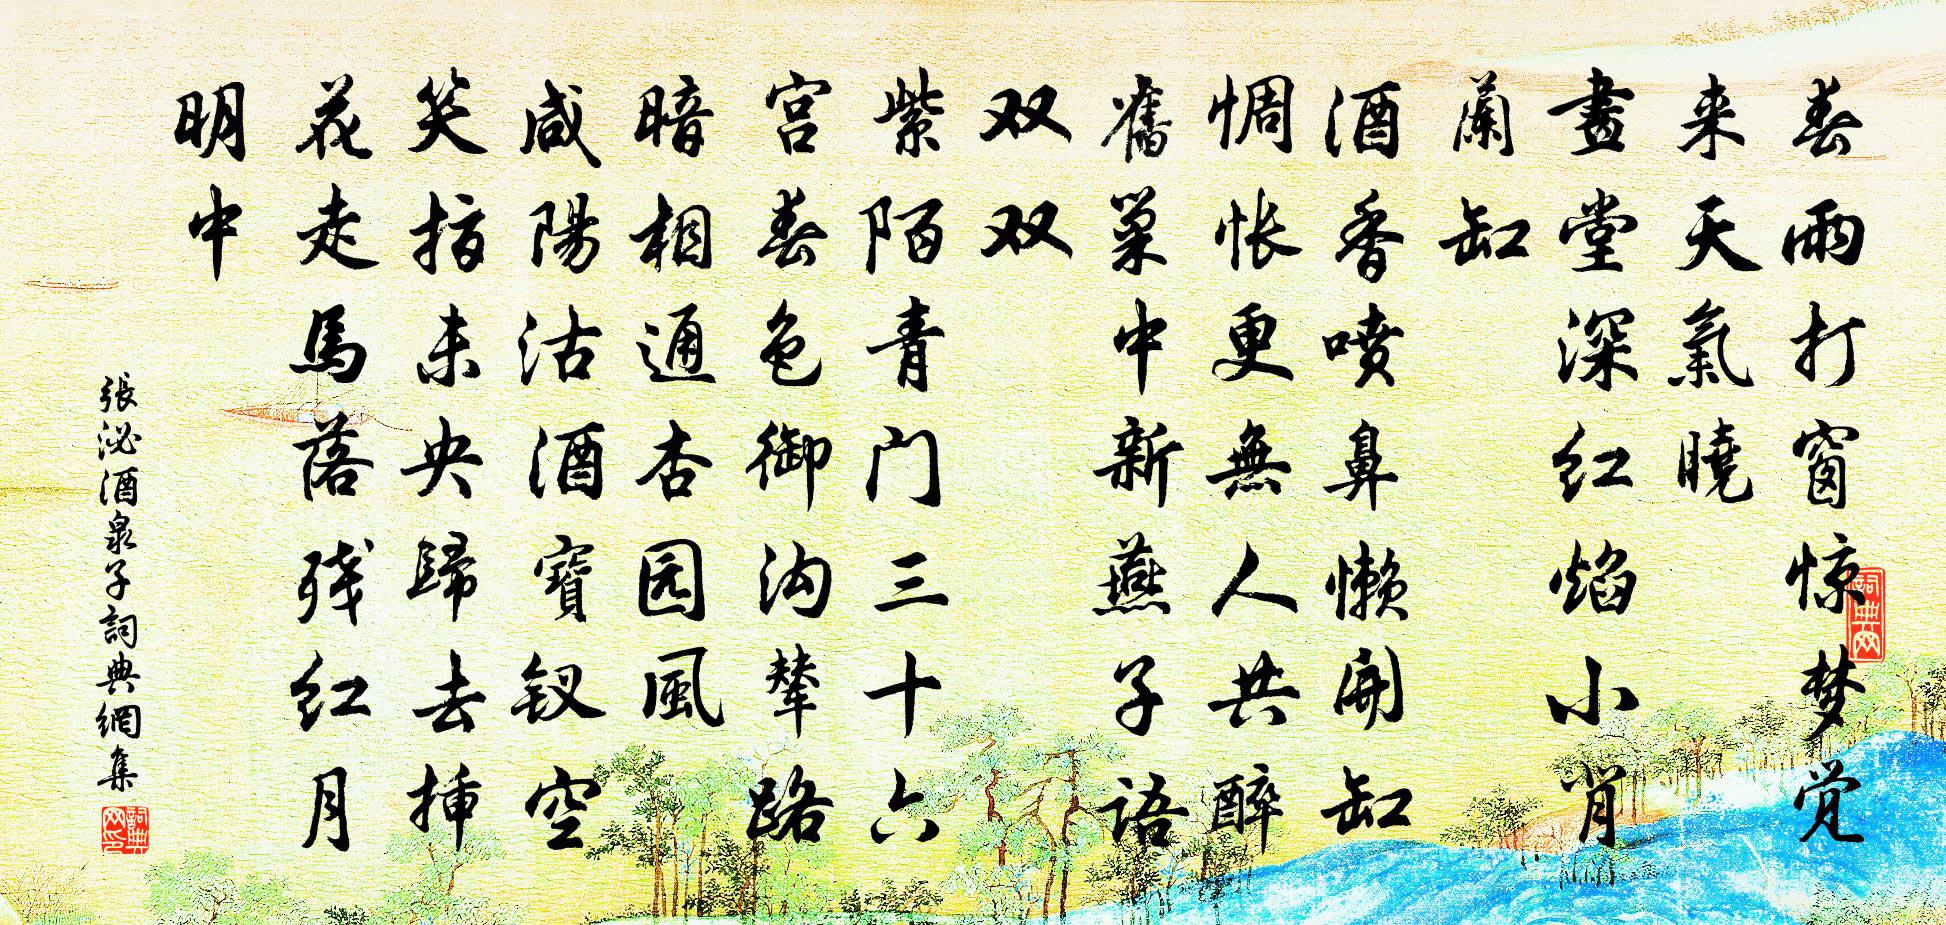 春雨打窗惊梦觉
来天氣曉
畫堂深红焰小肖
蘭缸
酒香喷鼻懒開缸
惆怅更無人共醉
舊巢中新燕子语
双双
紫陌青门三十六
宫春色御沟輦路
暗相通杏园風
咸陽沽酒寶钗空
笑指未央歸去挿
花走馬落残红月
明中
張泌酒泉子詞典網集
詞典网
詞典网印